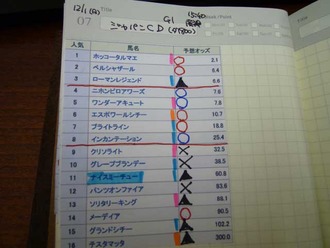 12/1(日) Title
07
G1 15:40
ジャパンCD (ダ1800)
人気 馬名 予想オッズ
1 ホッコータルマエ 2.1
2 ベルシャザール 5.4
3 ローマンレジェンド 6.6
4 ニホンピロアワーズ 7.8
5 ワンダーアキュート 7.8
6 エスポワールシチー 10.7
7 ブライトライン 18.8
8 インカンテーション 25.4
9 クリソライト 32.5
10 グレープブランデー 38.5
11 ナイスミーチュー 60.8
12 パンツオンファイア 83.6
13 ソリタリーキング 86.1
14 メーデイア 90.5
15 グランドシチー 102.2
16 テスタマッタ 300.0